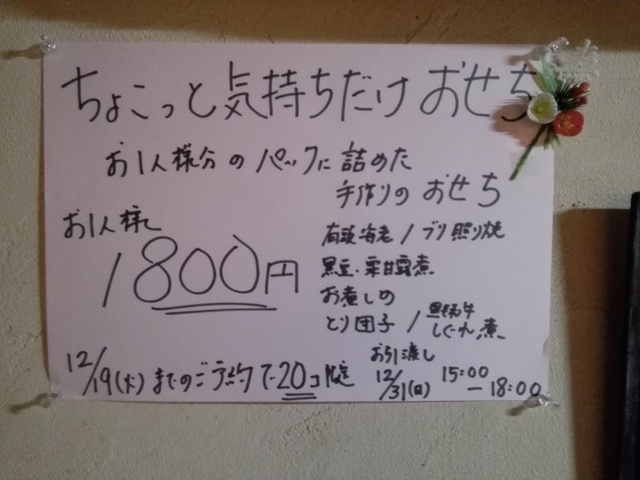 ちょこっと気持ちだけ おせち
お1人様分のパックに詰めた
手作りの おせち
お1人様
1800円
有頭海老/ブリ照り焼
黒豆・栗甘露煮
お煮しめ
とり団子/黒毛牛
しぐれ煮
12/19(火)までのご予約で20コ限定
お引渡し
12/31(日) 15:00
ー18:00